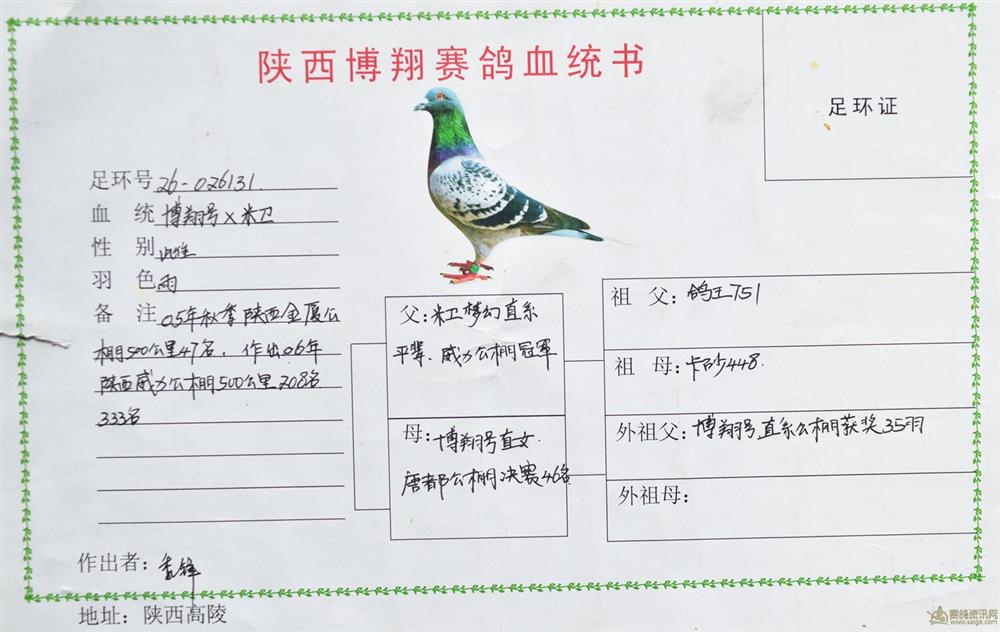 陕西博翔赛鸽血统书
足环证
足环号 26-026131
血 统 博翔号×米卫
性 别 雌
羽 色 雨
备 注 05年秋季陕西金厦公
棚500公里47名，作出06年
陕西威力公棚500公里208名
333名
父：米卫梦幻直系
平辈、威力公棚冠军
母：博翔号直女
唐都公棚决赛46名
祖 父：鸽王751
祖 母：卡砂448
外祖父：博翔号直系公棚获奖35羽
外祖母：
作出者：
地址：陕西高陵
赛鸽资讯网
www.saige.com